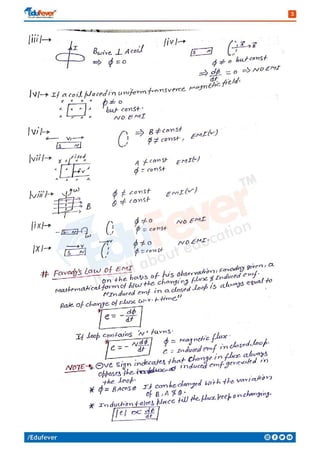 Edufever
3
|iii|→
I
B wire ⊥ A coil
⇒ ϕ = 0
|iv|→
S N
ϕ ≠ 0 but const.
⇒ dϕ/dt = 0 ⇒ NO EMI
|v|→ If a coil placed in uniform transverse magnetic field.
ϕ ≠ 0
but const.
NO EMI
|vi|→
S N
⇒ B ≠ const
ϕ ≠ const, EMI(✓)
|vii|→
A ≠ const EMI(-)
ϕ = const
|viii|→
B
ϕ ≠ const EMI(✓)
θ ≠ const
|ix|→
S N
ω
ϕ ≠ 0 NO EMI
ϕ = const
|x|→
S N
ϕ ≠ 0 NO EMI.
ϕ = const
# Faraday's Law of EMI
on the basis of his observation, Faraday given, a
Mathematical form of b/w the changing flux & Induced emf.
"Induced emf in a closed loop is always equal to
Rate of change of flux w.r.t time"
e = - dϕ/dt
If loop contains 'N' turns.
e = - Ndϕ/dt
ϕ = magnetic flux
e = Induced emf in closed loop.
NOTE → ⊖ve sign indicates that change in flux always
opposes the induced emf generated in
the loop.
* ϕ = BA cos θ It can be changed with the variation
of B, A & θ.
* Induction takes place till the flux keep on changing.
|e| ∝ dϕ/dt
Edufever
about education
TM
/Edufever